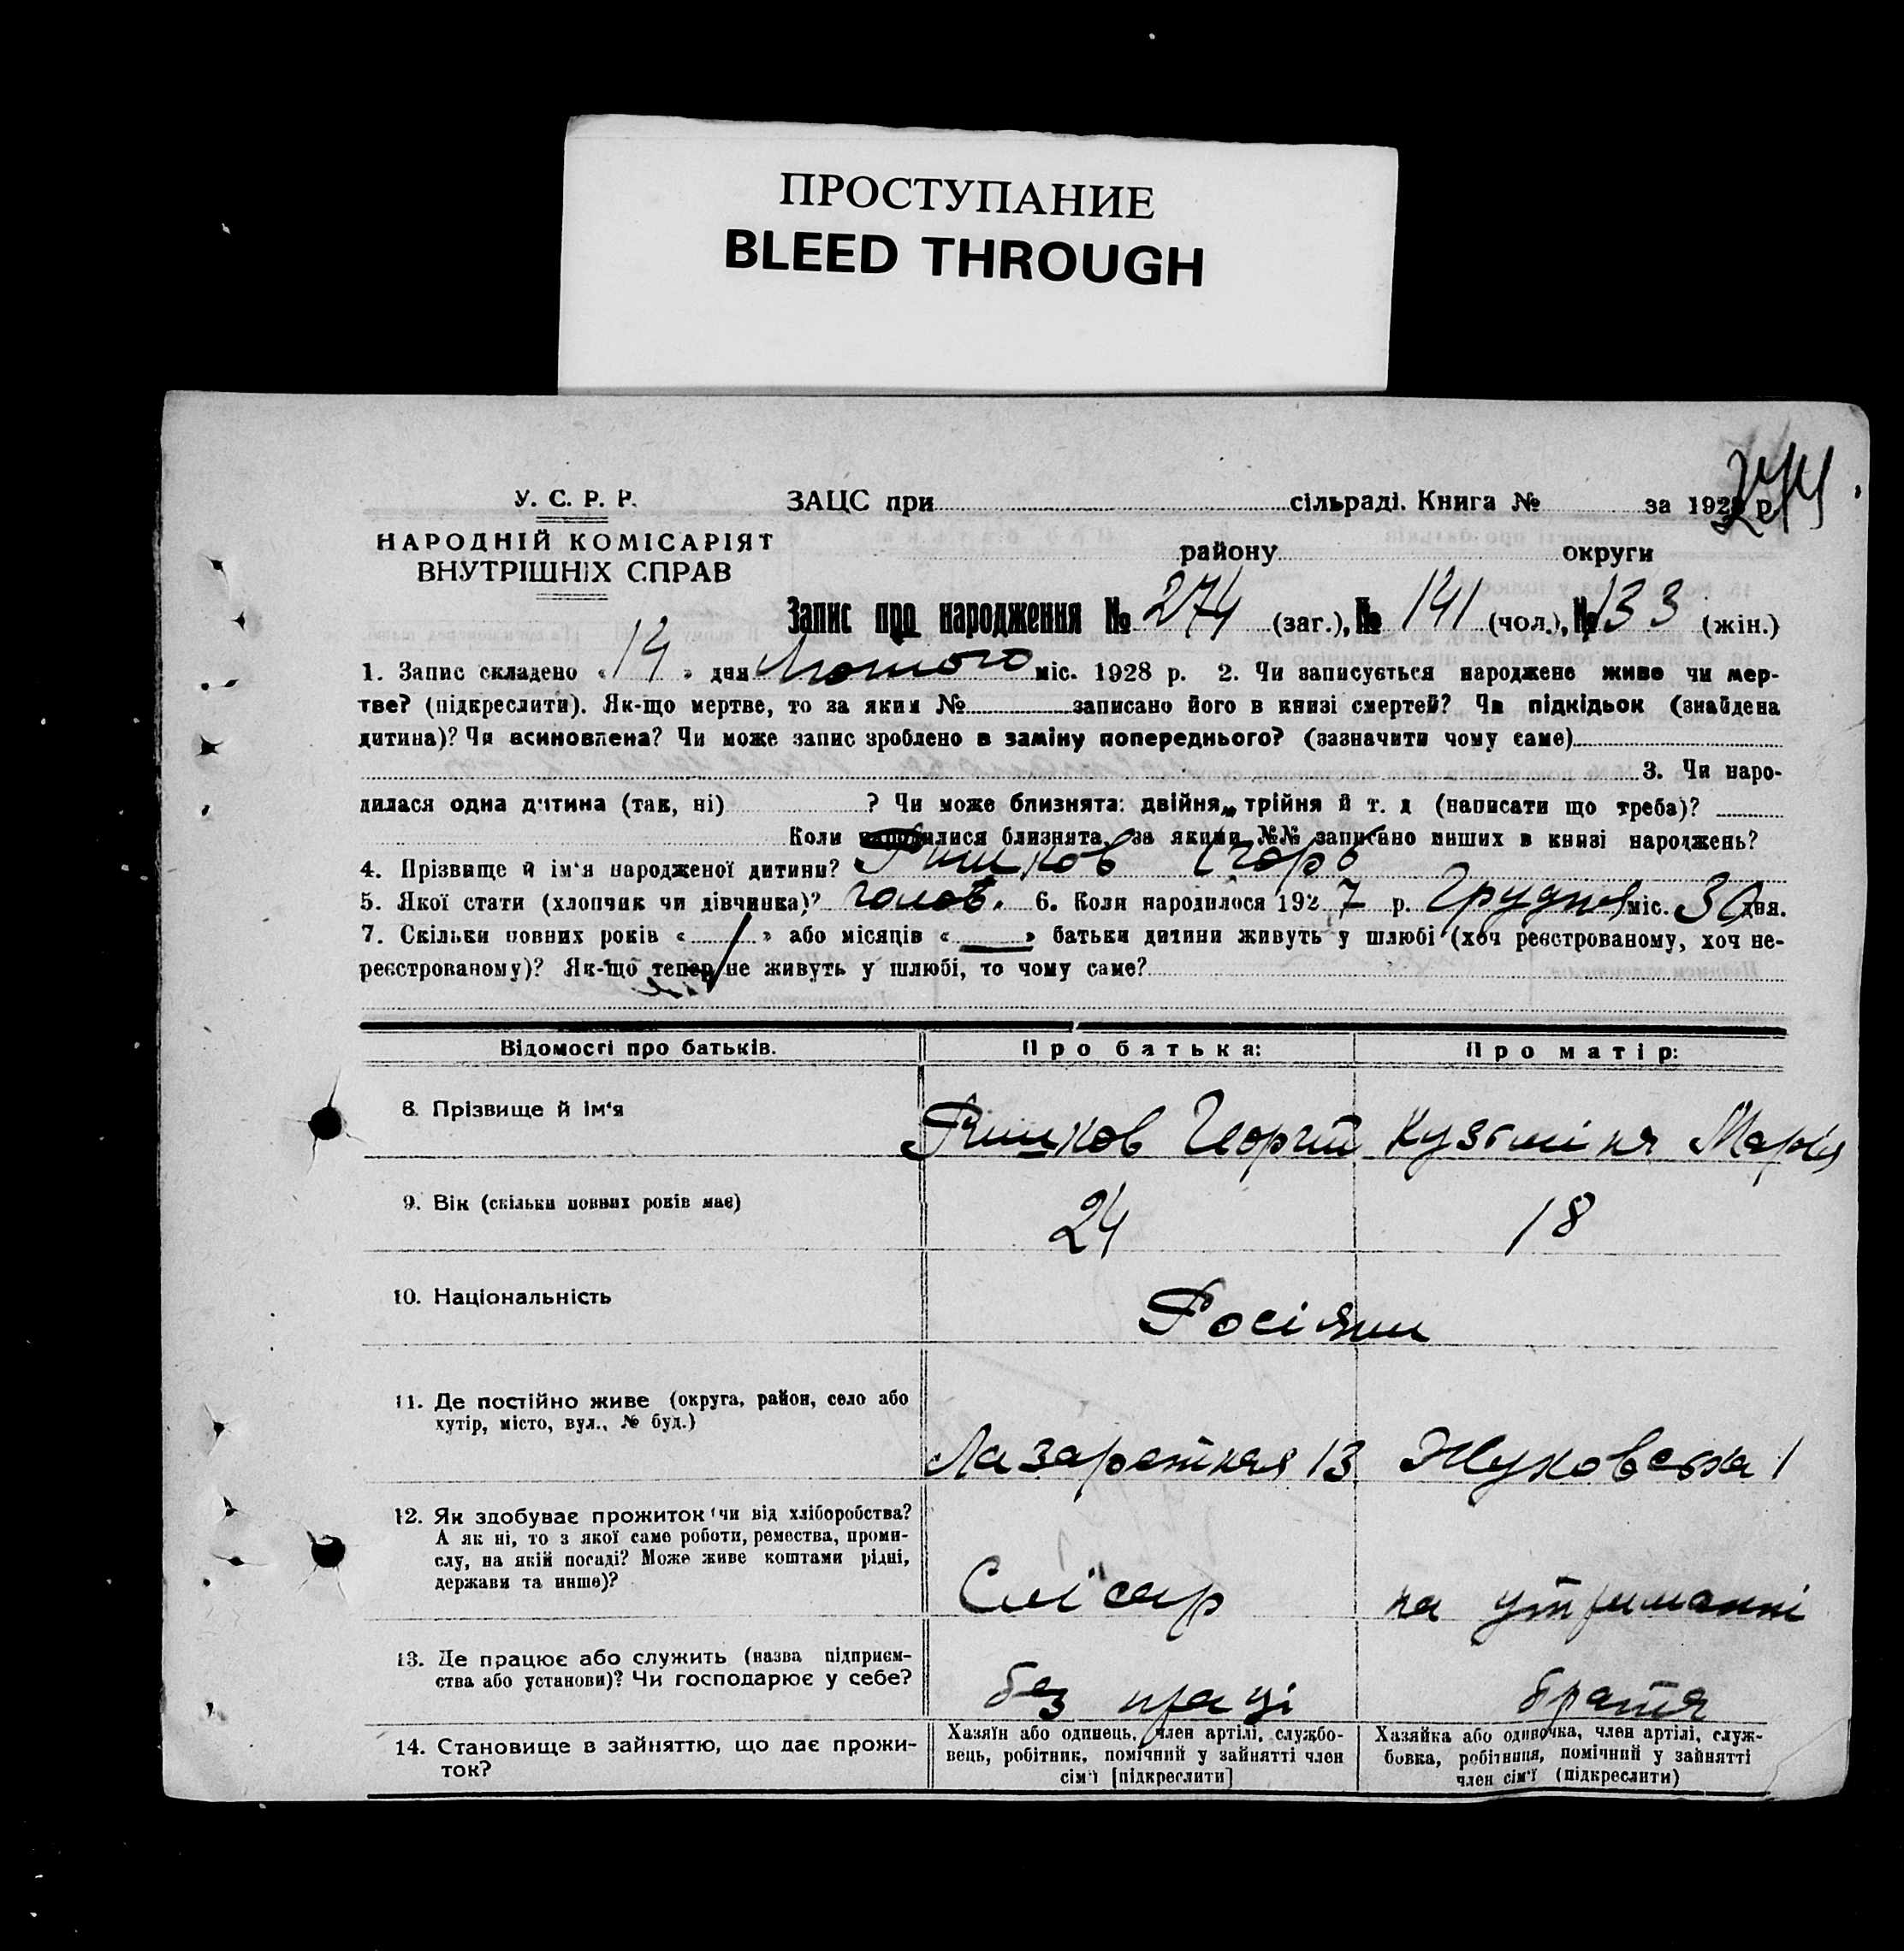 ПРОСТУПАНИЕ
BLEED THROUGH
274
У. С. Р. Р.
НАРОДНІЙ КОМІСАРІЯТ
ВНУТРІШНІХ СПРАВ
ЗАЦС при сільраді. Книга № за 192 р.
району округи
Запис про народження № 274 (заг.), № 141 (чол.), № 133 (жін.)
1. Запис складено « 14 » дня Лютого міс. 1928 р. 2. Чи записується народжене живе чи мер-
тве? (підкреслити). Як-що мертве, то за яким № записано його в книзі смертей? Чи підкідьок (знайдена
дитина)? Чи всиновлена? Чи може запис зроблено в заміну попереднього? (зазначити чому саме)
3. Чи наро-
дилася одна дитина (так, ні) ? Чи може близнята: двійня, трійня й т. д (написати що треба)?
Коли народилися близнята, за якими №№ записано инших в книзі народжень?
4. Прізвище й ім'я народженої дитини? Ришков Ігорь
5. Якої стати (хлопчик чи дівчинка)? чолов. 6. Коли народилося 1927 р. Грудня міс. 30 дня.
7. Скільки повних років « 1 » або місяців « — » батьки дитини живуть у шлюбі (хоч реєстрованому, хоч не-
реєстрованому)? Як-що тепер не живуть у шлюбі, то чому саме?
Відомості про батьків. Про батька: Про матір:
8. Прізвище й ім'я Ришков Георгій Кузьміна Марія
9. Вік (скільки повних років має) 24 18
10. Національність Росіяни
11. Де постійно живе (округа, район, село або
хутір, місто, вул., № буд.) Лазаретная 13 Жуковська 1
12. Як здобуває прожиток (чи від хліборобства?
А як ні, то з якої саме роботи, ремества, проми-
слу, на якій посаді? Може живе коштами рідні,
держави та инше)? Слісар на утриманні
13. Де працює або служить (назва підприєм-
ства або установи)? Чи господарює у себе? без праці братя
14. Становище в зайняттю, що дає прожи-
ток?
Хазяїн або одинець, член артілі, службо-
вець, робітник, помічний у зайнятті член
сім'ї [підкреслити]
Хазяйка або одиночка, член артілі, служ-
бовка, робітниця, помічний у зайнятті
член сім'ї (підкреслити)